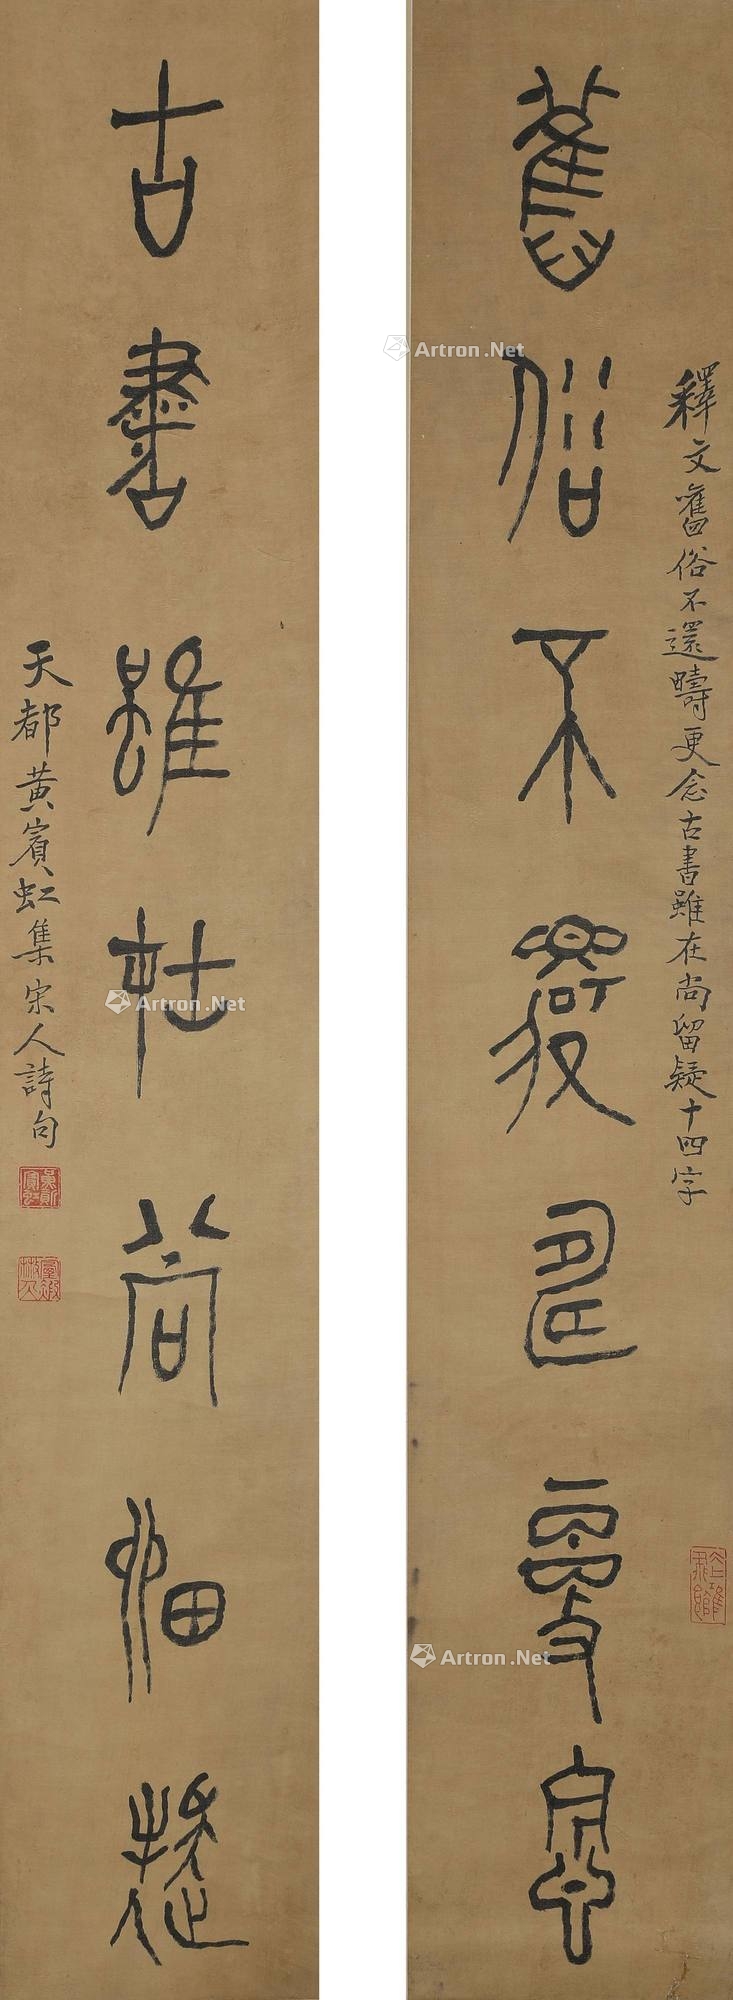 舊俗不還疇更念
釋文舊俗不還疇更念古書雖在尚留疑十四字
古書雖在尚留疑
天都黃賓虹集宋人詩句
Artron.Net
Artron.Net
Artron.Net
Artron.Net